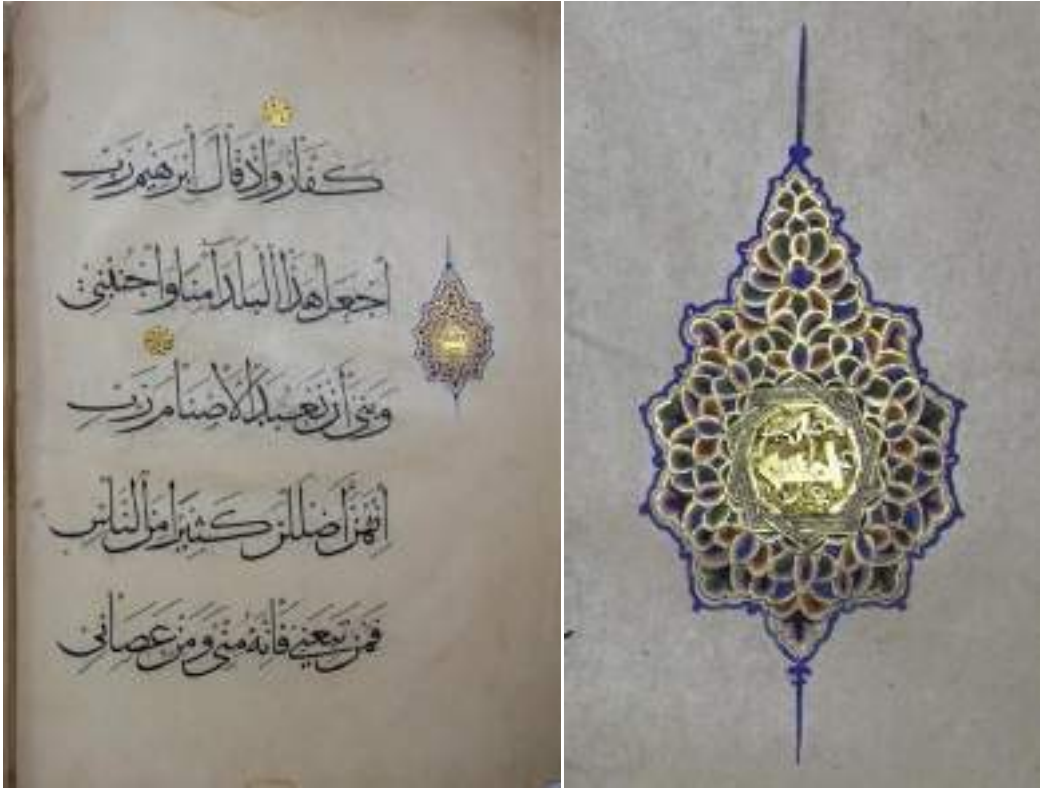 كَفَّارٌ وَإِذْ قَالَ إِبْرَهِيمُ رَبِّ
اجْعَلْ هَذَا الْبَلَدَ آمِنًا وَاجْنُبْنِي
وَبَنِيَّ أَنْ نَعْبُدَ الْأَصْنَامَ رَبِّ
إِنَّهُنَّ أَضْلَلْنَ كَثِيرًا مِنَ النَّاسِ
فَمَنْ تَبِعَنِي فَإِنَّهُ مِنِّي وَمَنْ عَصَانِي